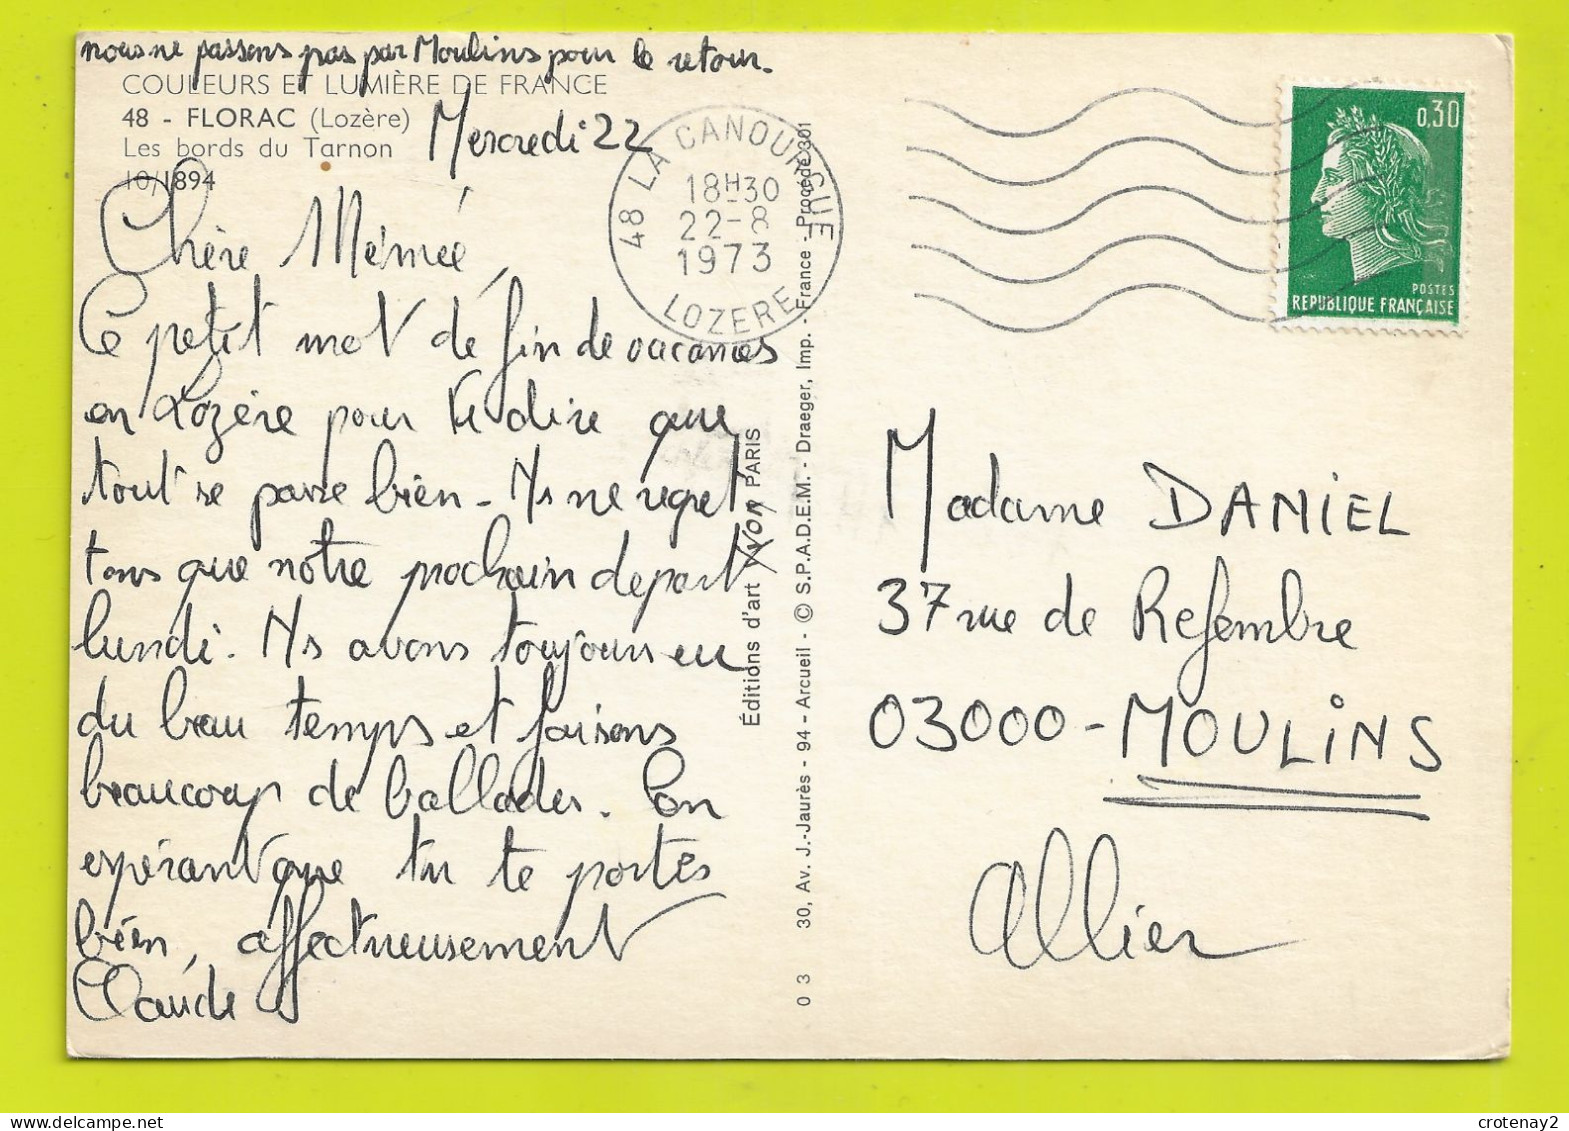 nous ne passons pas par Moulins pour le retour.
COULEURS ET LUMIÈRE DE FRANCE
48 - FLORAC (Lozère)
Les bords du Tarnon
10/1894
Mercredi 22
Chère Mémée,
Ce petit mot de fin de vacances
en Lozère pour te dire que
tout se passe bien - Ns ne regret
tons que notre prochain départ
lundi. Ns avons toujours eu
du beau temps et faisons
beaucoup de ballades. En
espérant que tu te portes
bien, affectueusement
Claude
48 LA CANOURGUE
18H30
22-8
1973
LOZERE
Éditions d'art YVON PARIS
0 3 30, Av. J.-Jaurès - 94 - Arcueil - © S.P.A.D.E.M. - Draeger, Imp. - France - Procédé 301
0,30
POSTES
REPUBLIQUE FRANÇAISE
Madame DANIEL
37 rue de Refembre
03000 - MOULINS
Allier
crotenay2